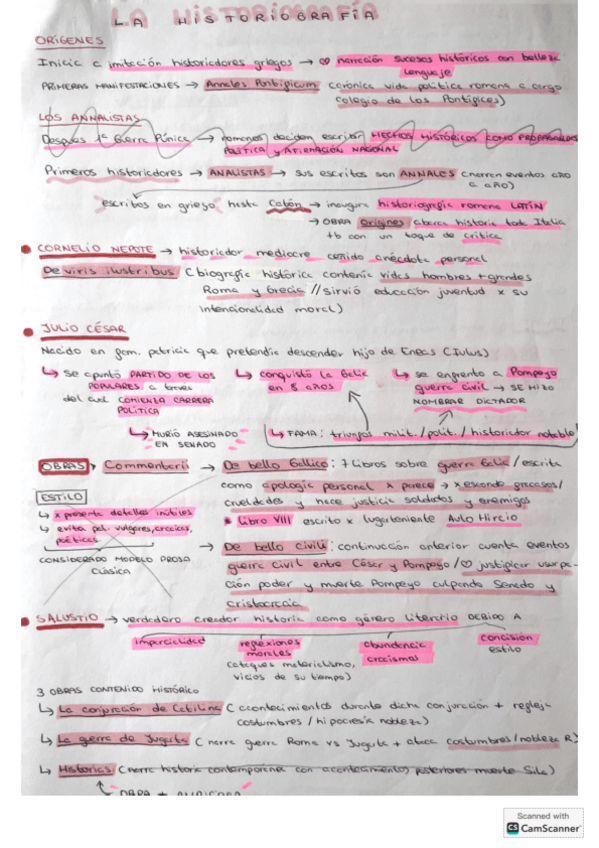 LA HISTORIOGRAFÍA
ORÍGENES
Inicia a imitación historiadores griegos → narración sucesos históricos con belleza
lenguaje
PRIMERAS MANIFESTACIONES → Annales Pontificum (crónica vida política romana a cargo
colegio de los Pontífices)
LOS ANNALISTAS
Después 1ª Guerra Púnica → romanos deciden escribir HECHOS HISTÓRICOS COMO PROPAGANDA
POLÍTICA y AFIRMACIÓN NACIONAL
Primeros historiadores → ANALISTAS → sus escritos son ANNALES (narren eventos año
a año)
escritos en griego hasta Catón → inaugura historiografía romana LATÍN
→ OBRA Orígines abarca historia toda Italia
tb con un toque de crítica
CORNELIO NEPOTE → historiador mediocre ceñido anécdota personal
De viris ilustribus (biografía histórica contenía vidas hombres + grandes
Roma y Grecia // sirvió educación juventud x su
intencionalidad moral)
JULIO CÉSAR
Nacido en fam. patricia que pretendía descender hijo de Eneas (Iulus)
↳ se apuntó PARTIDO DE LOS
POPULARES a través
del cual COMIENZA CARRERA
POLÍTICA
↳ MURIÓ ASESINADO
EN SENADO
↳ conquistó la Galia
en 8 años
↳ se enfrento a Pompeyo
guerra civil → SE HIZO
NOMBRAR DICTADOR
↳ FAMA: triunfos milit. / polit. / historiador notable
OBRAS Commentarii → De bello Gallico: 7 libros sobre guerra Galia / escrita
como apología personal x parece → x esconde fracasos /
crueldades y hace justicia soldados y enemigos
* Libro VIII escrito x lugarteniente Aulo Hircio
ESTILO
↳ x presenta detalles inútiles
↳ evita pal. vulgares, arcaicas,
poéticas
CONSIDERADO MODELO PROSA
CLÁSICA
→ De bello civili: continuación anterior cuenta eventos
guerra civil entre César y Pompeyo / justificar usurpa-
ción poder y muerte Pompeyo culpando Senado y
aristocracia
SALUSTIO → verdadero creador historia como género literario DEBIDO A
imparcialidad
reflexiones
morales
(ataques materialismo,
vicios de su tiempo)
abundancia
arcaísmos
concisión
estilo
3 OBRAS CONTENIDO HISTÓRICO
↳ La conjuración de Catilina (acontecimientos durante dicha conjuración + refleja
costumbres / hipocresía nobleza)
↳ La guerra de Jugurta (narra guerra Roma vs Jugurta + ataca costumbres / nobleza R)
↳ Historias (narra historia contemporánea con acontecimientos posteriores muerte Sila)
OBRA + AMBICIOSA
Scanned with
CS CamScanner